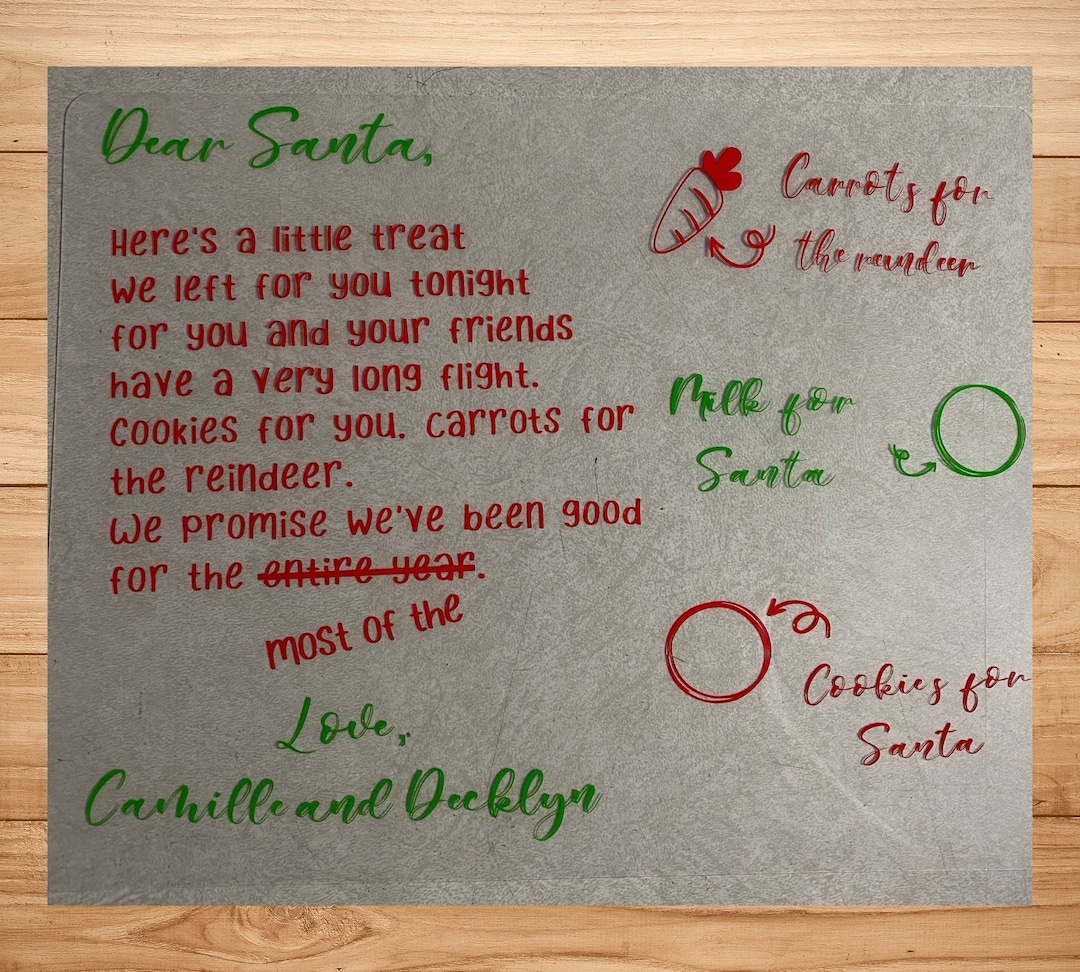 Dear Santa,
Here's a little treat
we left for you tonight
for you and your friends
have a very long flight.
Cookies for you. carrots for
the reindeer.
We promise we've been good
for the entire year.
most of the
Love,
Camille and Decklyn
Carrots for
the reindeer
Milk for
Santa
Cookies for
Santa